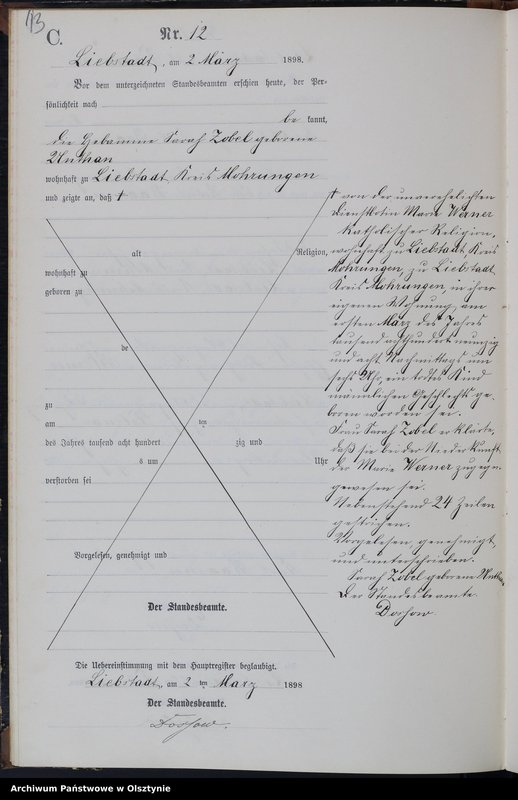 13
C.
Nr. 12
Liebstadt, am 2 März 1898.
Vor dem unterzeichneten Standesbeamten erschien heute, der Per-
sönlichkeit nach
be kannt,
die Hebamme Sarah Zobel geborene
wohnhaft zu Liebstadt Kreis Mohrungen
und zeigte an, daß †
alt Religion,
wohnhaft zu
geboren zu
de
zu
am ten
des Jahres tausend acht hundert zig und
s um Uhr
verstorben sei
Vorgelesen, genehmigt und
Der Standesbeamte.
† von der unverehelichten
Dienstbotin Marie Werner
katholischer Religion,
wohnhaft zu Liebstadt Kreis
Mohrungen, zu Liebstadt
Kreis Mohrungen, in ihrer
eigenen Wohnung, am
ersten März des Jahres
tausend achthundert neunzig
und acht Nachmittags um
sechs Uhr, ein todtes Kind
männlichen Geschlechts ge-
boren worden sei.
Frau Sarah Zobel erklärte,
daß sie bei der Niederkunft
der Marie Werner zugegen
gewesen sei.
Nebenstehend 24 Zeilen
gestrichen.
Vorgelesen, genehmigt
und unterschrieben.
Sarah Zobel geborene
Der Standesbeamte.
Die Uebereinstimmung mit dem Hauptregister beglaubigt.
Liebstadt, am 2 ten März 1898
Der Standesbeamte.
Archiwum Państwowe w Olsztynie